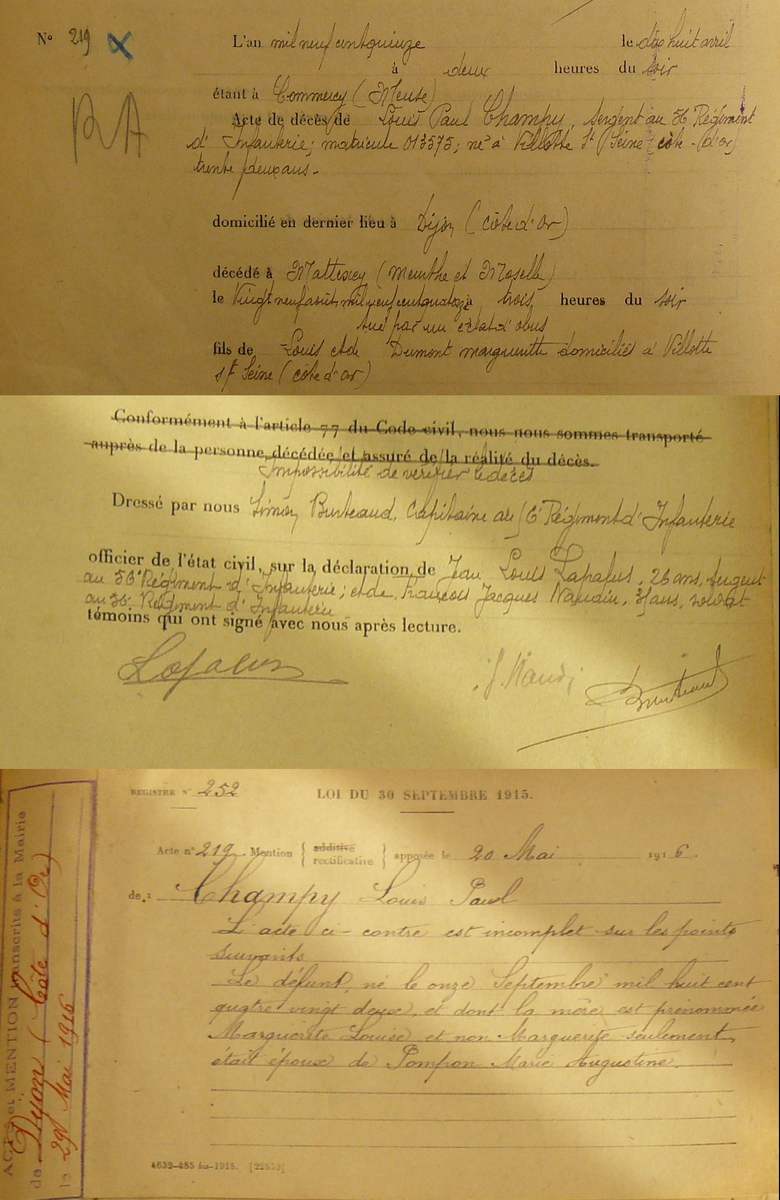 N° 219 X
L'an mil neuf cent quinze le dix huit avril
à deux heures du soir
étant à Commercy (Meuse)
RA
Acte de décès de Louis Paul Champy, sergent au 56 Régiment
d'Infanterie; matricule 013575; né à Villotte St Seine (côte-d'or)
trente deux ans.
domicilié en dernier lieu à Dijon (côte d'or)
décédé à Mattexey (Meurthe et Moselle)
le Vingt neuf août mil neuf cent quatorze à trois heures du soir
tué par un éclat d'obus
fils de Louis et de Dumont marguerite domiciliés à Villotte
st Seine (côte d'or)
Conformément à l'article 77 du Code civil, nous nous sommes transporté
auprès de la personne décédée et assuré de la réalité du décès.
Impossibilité de vérifier le décès
Dressé par nous Simon Burteaud, Capitaine au 56 Régiment d'Infanterie
officier de l'état civil, sur la déclaration de Jean Louis Lapalus, 26 ans, sergent
au 56 Régiment d'Infanterie; et de François Jacques Naudin, ans, soldat
au 56 Régiment d'Infanterie
témoins qui ont signé avec nous après lecture.
Lapalus J. Naudin Burteaud
REGISTRE N° 252 LOI DU 30 SEPTEMBRE 1915.
Acte n° 219 Mention { additive rectificative } apposée le 20 Mai 1916.
de : Champy Louis Paul
L'acte ci-contre est incomplet sur les points
suivants
Le défunt, né le onze Septembre mil huit cent
quatre vingt deux, et dont la mère est prénommée
Marguerite Louise et non Marguerite seulement,
était époux de Pompon Marie Augustine.
4639-485 bis-1915. [22513]
ACTE et MENTION transcrits à la Mairie
de Dijon (Côte d'Or)
le 29 Mai 1916